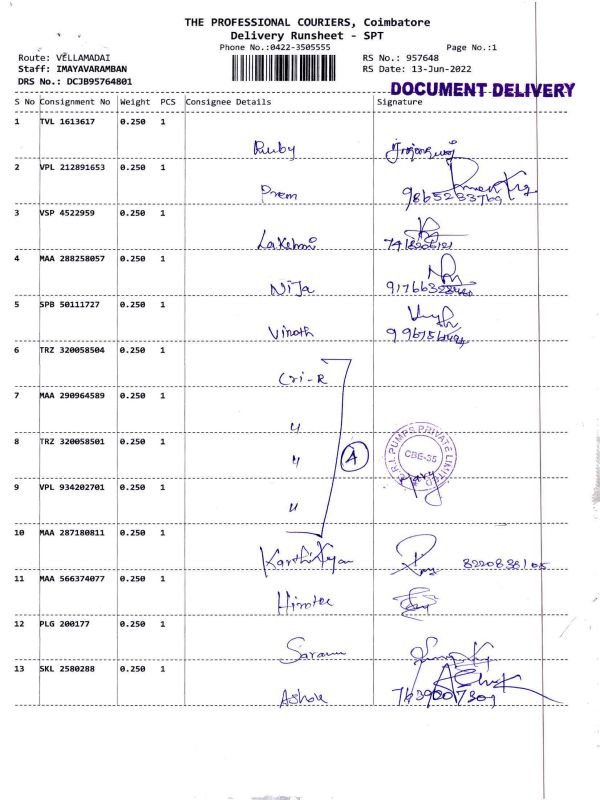 THE PROFESSIONAL COURIERS, Coimbatore
Delivery Runsheet - SPT
Phone No.:0422-3505555 Page No.:1
Route: VELLAMADAI RS No.: 957648
Staff: IMAYAVARAMBAN RS Date: 13-Jun-2022
DRS No.: DCJB95764801
DOCUMENT DELIVERY
S No Consignment No Weight PCS Consignee Details Signature
1 TVL 1613617 0.250 1
Ruby
2 VPL 212891653 0.250 1
Prem 9865233769
3 VSP 4522959 0.250 1
Lakshmi
4 MAA 288258057 0.250 1
Nija
5 SPB 50111727 0.250 1
Vinoth
6 TRZ 320058504 0.250 1
Cri-R
7 MAA 290964589 0.250 1
"
8 TRZ 320058501 0.250 1
" 4 C.R.I. PUMPS PRIVATE LIMITED CBE-35
9 VPL 934202701 0.250 1 Mary
"
10 MAA 287180811 0.250 1
Karthikeyan
11 MAA 566374077 0.250 1
12 PLG 200177 0.250 1
13 SKL 2580288 0.250 1
Ashok 7639007309